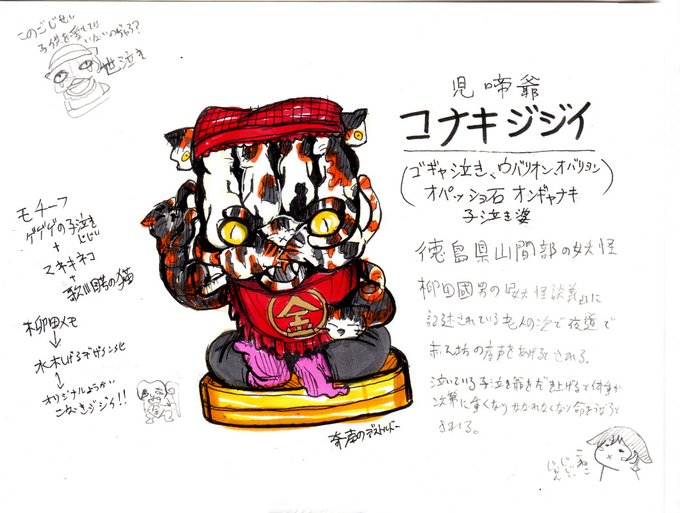 このごじせい
子供を愛して
いないのがろ?
世泣き
児啼爺
コナキジジイ
(ゴギャ泣き、ウバリオン、オバリヨン
オパッショ石 オンギャナキ
子泣き婆)
徳島県山間部の妖怪
柳田國男の『妖怪談義』に
記述されている老人の姿で夜道で
赤ん坊の産声をあげるとされる。
泣いている子泣き爺をだき上げると体重が
次第に重くなり
命をうばうと
される。
モチーフ
ゲゲゲの子泣き
じじい
+
マネキネコ
+
の猫
柳田メモ
↓
水木しげるデザイン化
↓
オリジナルようかい
こなきジジイ!!
金